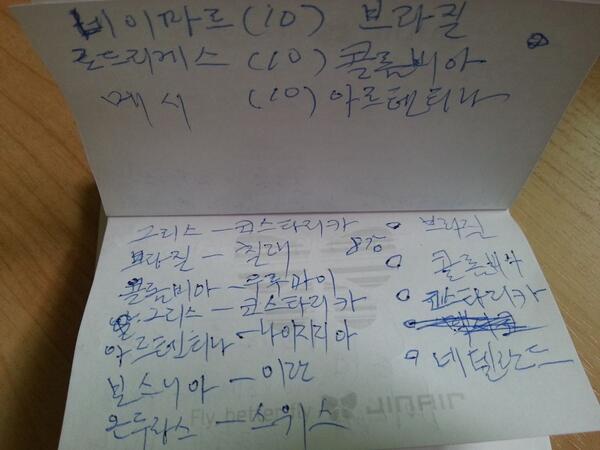 네이마르 (10) 브라질
로드리게스 (10) 콜롬비아
메시 (10) 아르텐티나
그리스 - 코스타리카
브라질 - 칠레
콜롬비아 - 우루과이
그리스 - 코스타리카
아르텐티나 - 나이지리아
보스니아 - 이란
온두라스 - 스위스
8강
브라질
콜롬비아
코스타리카
네델란드
Fly, better fly JINAIR